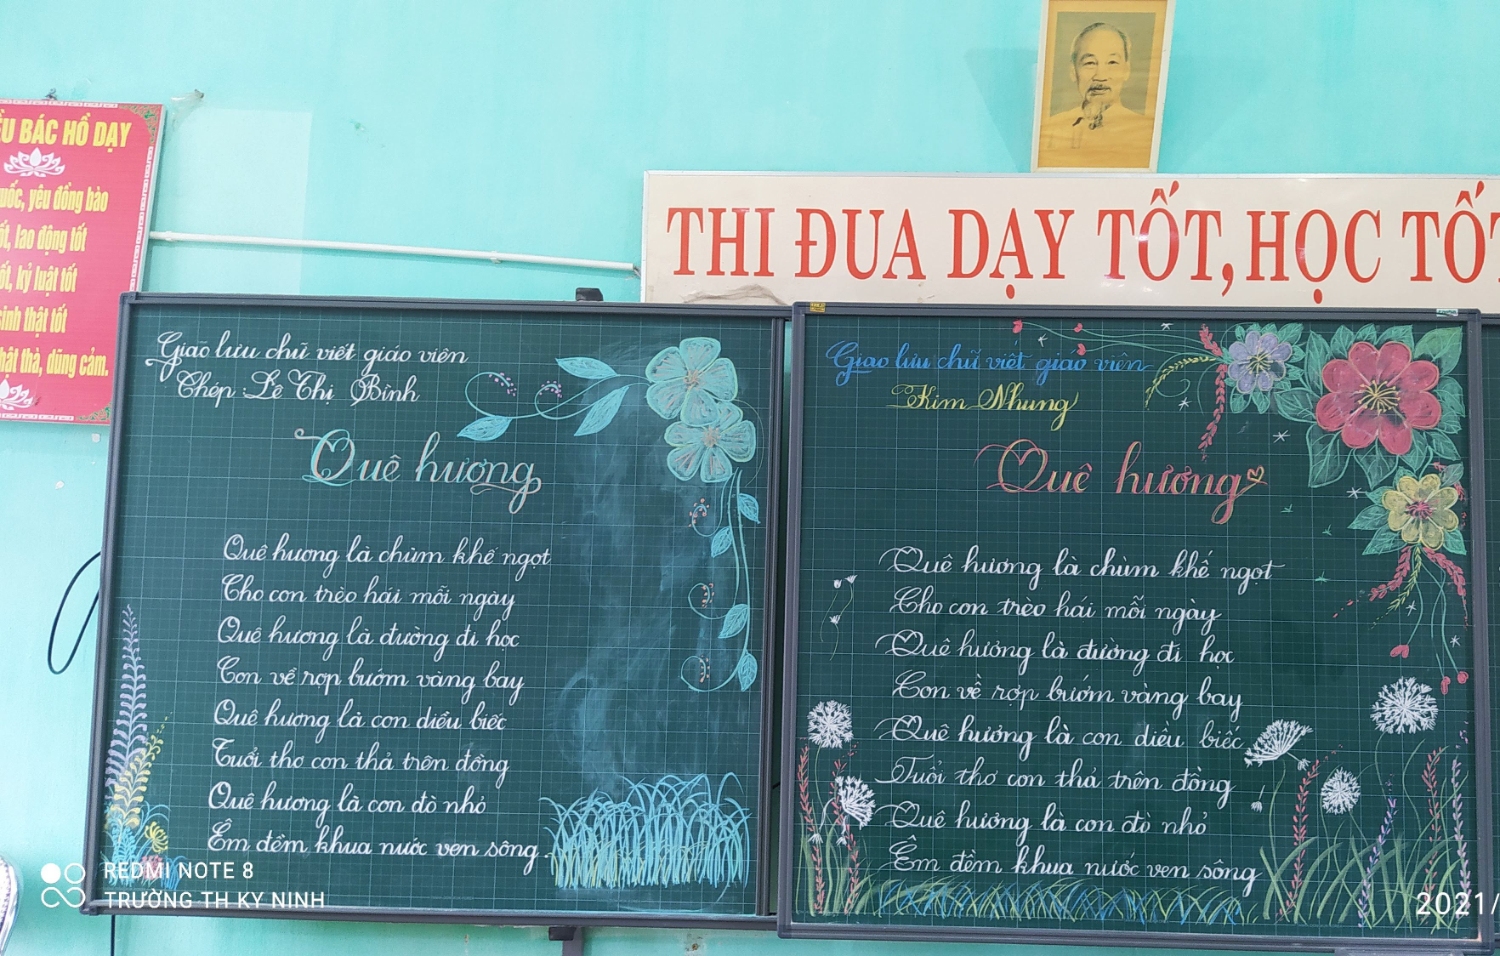 ỀU BÁC HỒ DẠY
uốc, yêu đồng bào
ốt, lao động tốt
ốt, kỷ luật tốt
sinh thật tốt
hật thà, dũng cảm.
THI ĐUA DẠY TỐT, HỌC TỐT
Giao lưu chữ viết giáo viên
Chép: Lê Thị Bình
Quê hương
Quê hương là chùm khế ngọt
Cho con trèo hái mỗi ngày
Quê hương là đường đi học
Con về rợp bướm vàng bay
Quê hương là con diều biếc
Tuổi thơ con thả trên đồng
Quê hương là con đò nhỏ
Êm đềm khua nước ven sông.
Giao lưu chữ viết giáo viên
Kim Nhung
Quê hương
Quê hương là chùm khế ngọt
Cho con trèo hái mỗi ngày
Quê hương là đường đi học
Con về rợp bướm vàng bay
Quê hương là con diều biếc
Tuổi thơ con thả trên đồng
Quê hương là con đò nhỏ
Êm đềm khua nước ven sông
REDMI NOTE 8
TRƯỜNG TH KY NINH
2021/